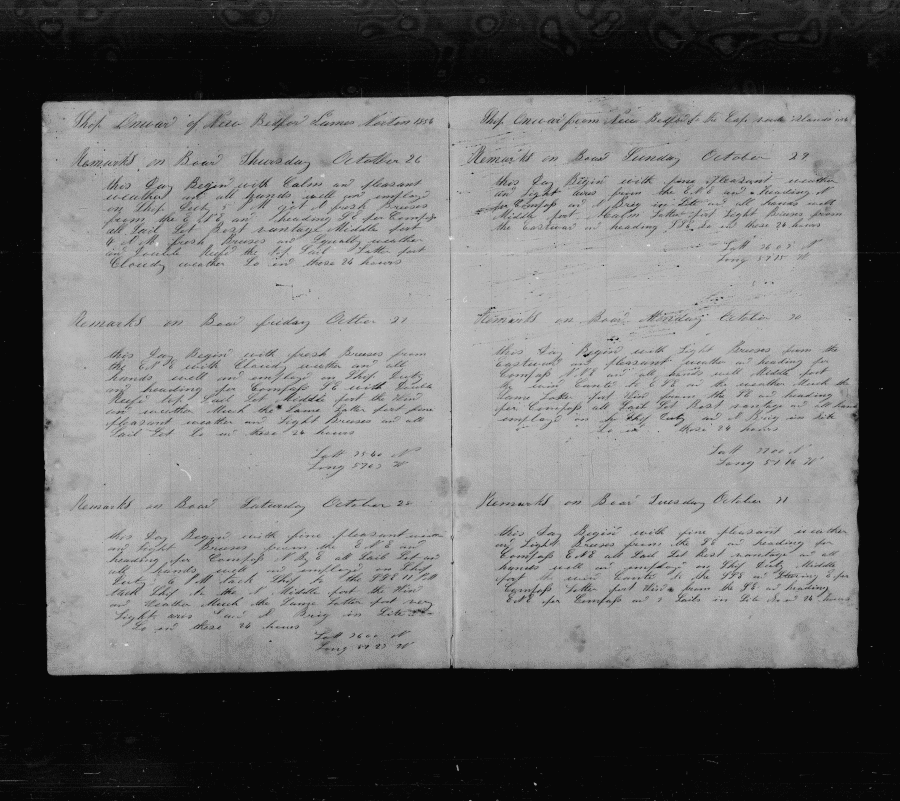 Ship Onward of New Bedford James Norton 1854
Remarks on Board Thursday October 26
this Day Begin with Calm and pleasant
weather and all hands well and employd
on Ship Duty at P M got A fresh Breses
from the E N E and heading S E per Compass
all Sail Set Best vantage Middle part
4 A M fresh Breses and Squally weather
and Double Reeft the top Sail Latter part
Cloudy weather So in these 24 hours
Remarks on Board friday Octber 27
this Day Begin with fresh Breses from
the E N E with Cloudy weather and all
hands well and employd on Ship Duty
and heading per Compass S E with Double
Reeft top Sail Set Middle part the Wind
and weather Much the Same Latter part fine
pleasant weather and Light Breses and all
Sail Set So in these 24 hours
Latt 35 40 N
Long 57 03 W
Remarks on Board Saturday October 28
this Day Beggin with fine pleasant weather
and Light Breses from the E N E and
heading per Compass N By E all Sail Set and
all hands well and employd on Ship
Duty 6 P M tack Ship to the S S E 11 P M
tack Ship to the N Middle part the Wind
and Weather Much the Same Latter part very
Light airs and A Brig in Site
So in these 24 hours
Latt 36 00 N
Long 57 23 W
Ship Onward from New Bedford to the Cap verd Islands 1854
Remarks on Board Sunday October 29
this Day Begin with fine pleasant weather
and Light aires from the E N E and Heading N
per Compass and A Brig in Site and all hands well
Middle part Calm Latter part Light Breses from
the Eastward and heading S S E So in these 24 hours
Latt 36 05 N
Long 57 15 W
Remarks on Board Monday October 30
this Day Begin with Light Breses from the
Eastward and pleasant weather and heading per
Compass N N E and all hands well Middle part
the wind Cants to E S E and the weather Much the
Same Latter part Wind from the S E and heading
per Compass all Sail Set Best vantage and all hands
employd on Ship Duty and A Brig in Site
So in these 24 hours
Latt 37 00 N
Long 57 16 W
Remarks on Board Tuesday October 31
this Day Begin with fine pleasant weather
and Light Breses from the S E and heading per
Compass E N E all Sail Set Best vantage and all
hands well and employd on Ship Duty Middle
part the wind Cants to the S S E and heading E per
Compass Latter part Wind from the S E and heading
E N E per Compass and 2 Sails in Site So in 24 hours